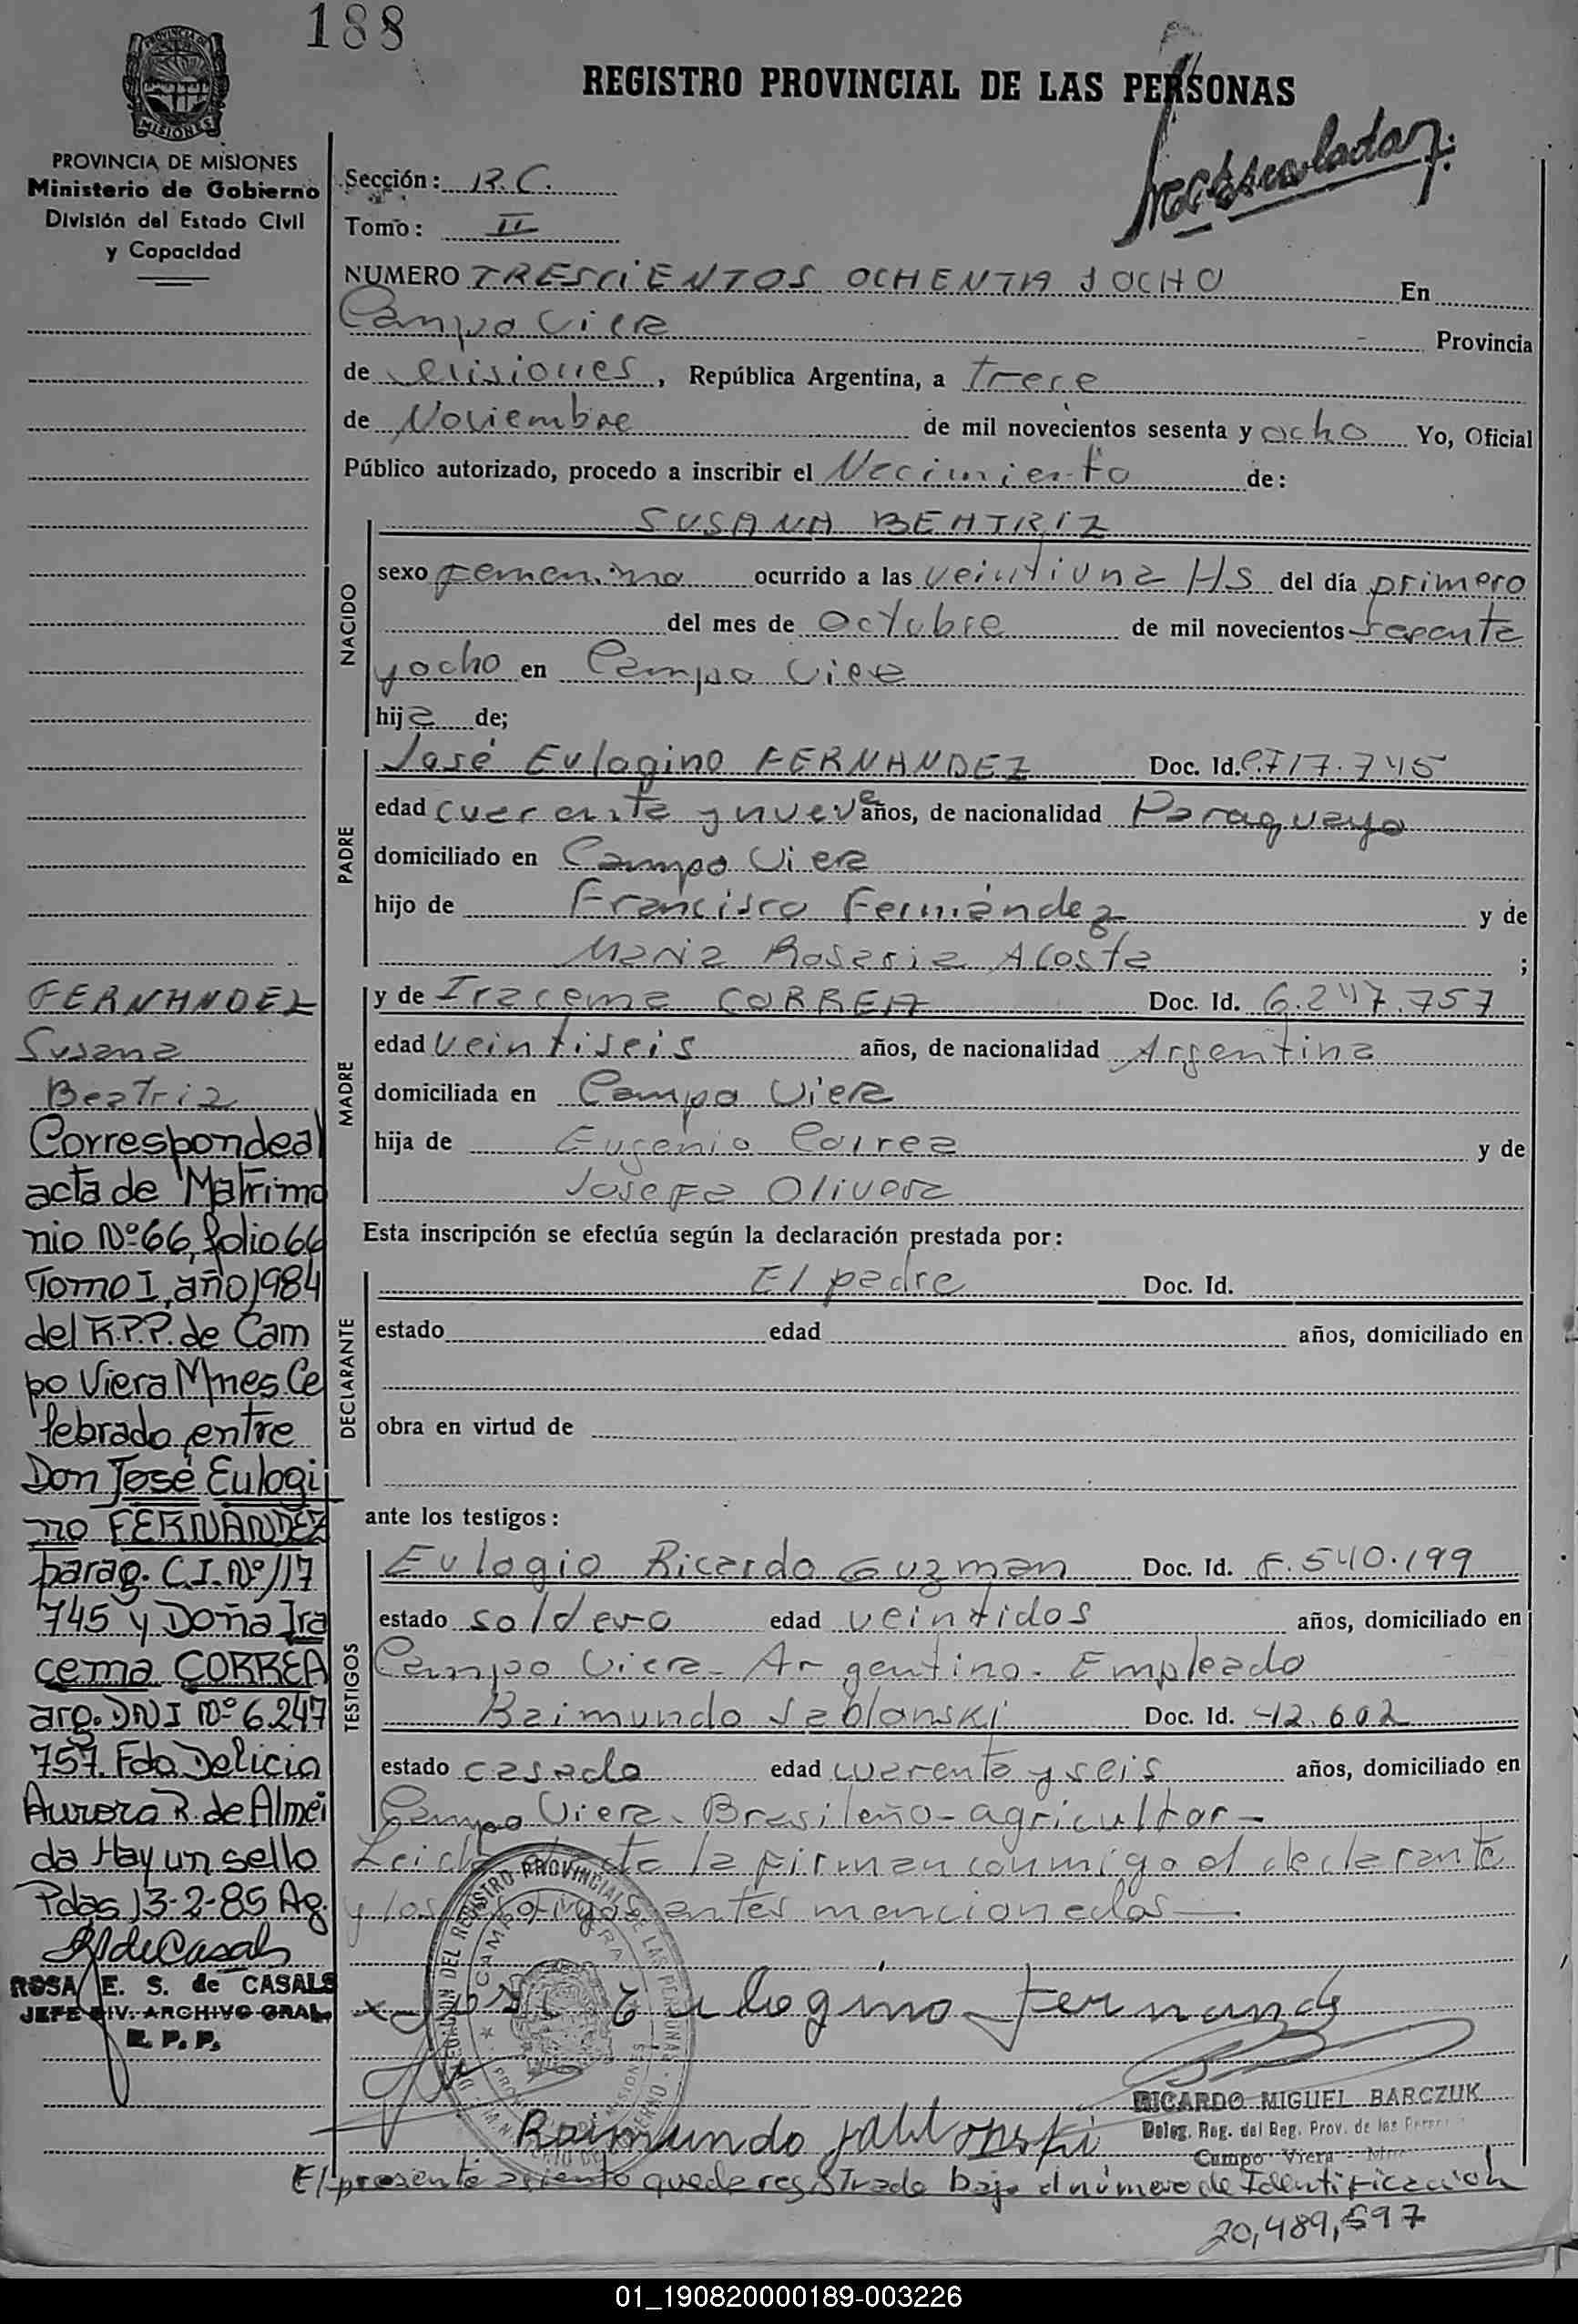 188
REGISTRO PROVINCIAL DE LAS PERSONAS
MISIONES
PROVINCIA DE MISIONES
Ministerio de Gobierno
División del Estado Civil
y Capacidad
Sección: R.C.
Tomo: II
NUMERO TRESCIENTOS OCHENTA Y OCHO En
Campo Viera Provincia
de Misiones, República Argentina, a trece
de Noviembre de mil novecientos sesenta y ocho Yo, Oficial
Público autorizado, procedo a inscribir el Nacimiento de:
NACIDO
SUSANA BEATRIZ
sexo femenino ocurrido a las veintiuna Hs del día primero
del mes de Octubre de mil novecientos sesenta
y ocho en Campo Viera
hija de;
PADRE
José Eulogino FERNANDEZ Doc. Id. C.717.745
edad cuarenta y nueve años, de nacionalidad Paraguayo
domiciliado en Campo Viera
hijo de Francisco Fernández y de
Maria Rosaria Acosta ;
MADRE
y de Iracema CORREA Doc. Id. 6.247.757
edad veintiseis años, de nacionalidad Argentina
domiciliada en Campo Viera
hija de Eugenio Correa y de
Josefa Olivera
Esta inscripción se efectúa según la declaración prestada por:
DECLARANTE
El padre Doc. Id.
estado edad años, domiciliado en
obra en virtud de
ante los testigos:
TESTIGOS
Eulogio Ricardo Guzman Doc. Id. 8.540.199
estado soldero edad veintidos años, domiciliado en
Campo Viera - Argentino. Empleado
Raimundo Jablonski Doc. Id. 42.602
estado casado edad cuarenta y seis años, domiciliado en
Campo Viera - Brasileño - agricultor -
Leida la firman conmigo el declarante
y los testigos antes mencionados
José Eulogino Fernandez
Raimundo Jablonski
RICARDO MIGUEL BARCZUK
Deleg. Reg. del Reg. Prov. de las
Campo Viera -
El presente asiento queda registrado bajo el número de Identificación
20,489,597
FERNANDEZ
Susana
Beatriz
Corresponde al
acta de Matrimo
nio Nº 66, folio 66
Tomo I, año 1984
del R.P.P. de Cam
po Viera Mnes Ce
lebrado entre
Don José Eulogi
no FERNANDEZ
parag. C.I. Nº 717
745 y Doña Ira
cema CORREA
arg. DNI Nº 6.247
757. Fdo Delicia
Aurora R. de Almei
da Hay un sello
Pdas 13-2-85 Ag.
ROSA E. S. de CASALS
JEFE DIV. ARCHIVO GRAL.
R. P. P.
01_190820000189-003226